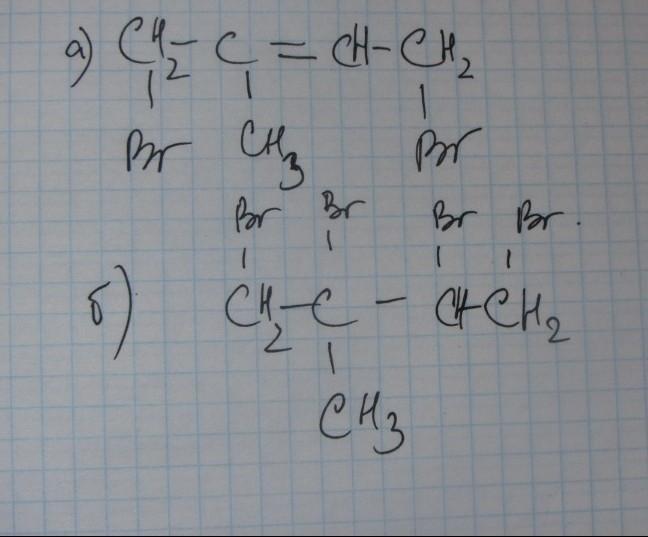 а) CH2 - C = CH - CH2
Br CH3 Br
Br Br Br Br.
б) CH2 - C - CH - CH2
CH3